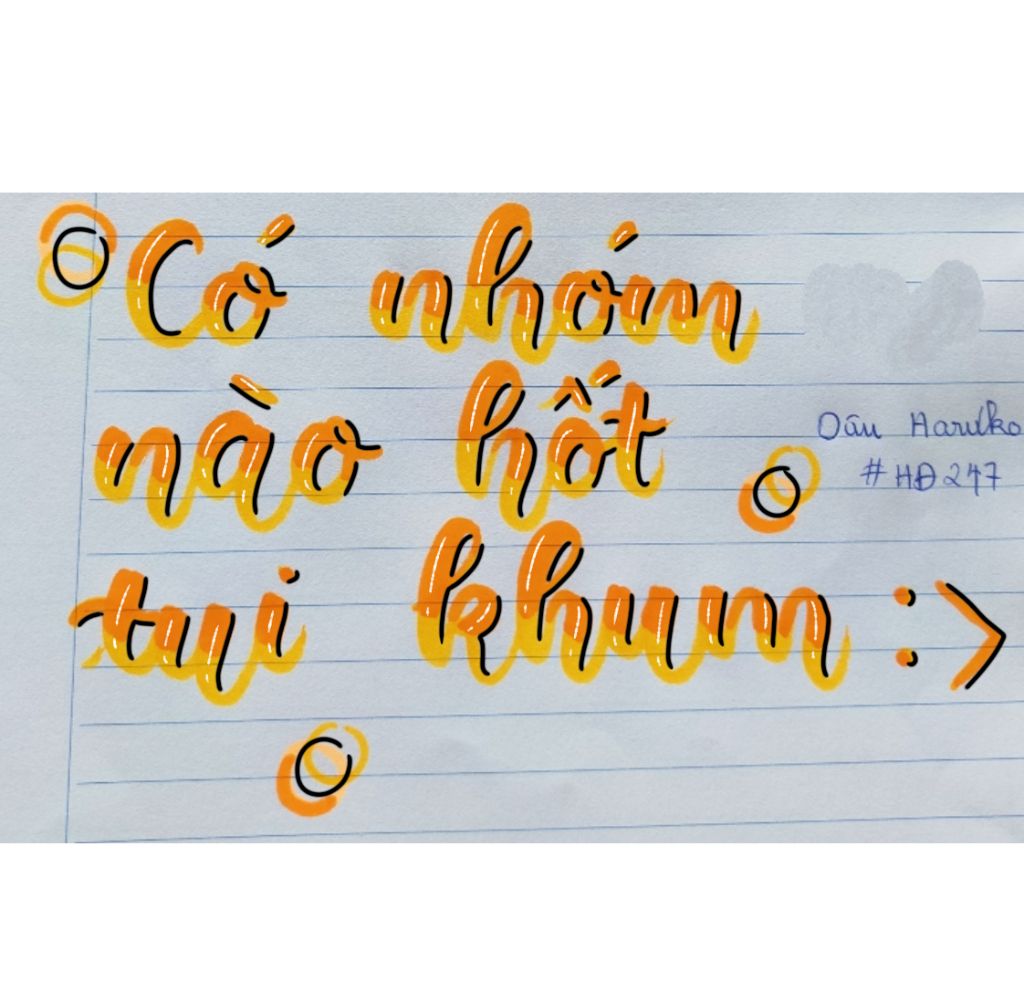 Có nhóm
nào hốt
Dâu Haruko
#HĐ247
tui khum :>